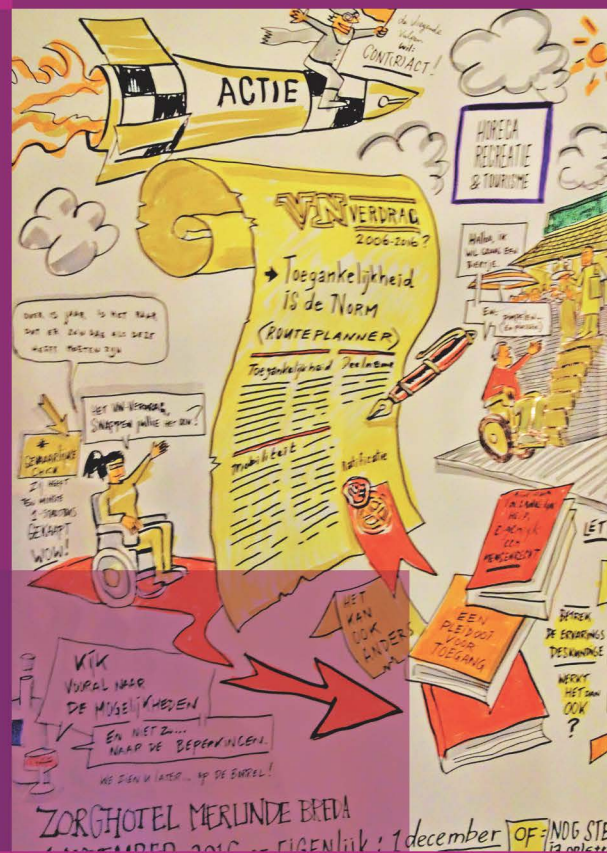 de vliegende
Vulpen
wil:
CONT(R)ACT!
ACTIE
HORECA
RECREATIE
& TOURISME
VN VERDRAG
2006-2016?
→ Toegankelijkheid
is de NORM
(ROUTEPLANNER)
Toegankelijkheid Deelname
Mobiliteit
Ratificatie
Hallo, IK
WIL GRAAG EEN
BIERTJE
En:
OVER 15 JAAR IS HET RAAR
DAT ER ZO'N DAG ALS DEZE
HEEFT MOETEN ZIJN
HET VN-VERDRAG,
SNAPPEN jullie HET NOU?
*
GEVAARLIJKE
CHICK
ZIJ HEEFT
TEN MINSTE
GEKAAPT
WOW!
TOEGANKELIJK
HEID,
EIGENLIJK
EEN
MENSENRECHT
LET
HET
KAN
OOK
ANDERS
EEN
PLEIDOOI
VOOR
TOEGANG
BETREK
DE ERVARINGS
DESKUNDIGE
WERKT
HET DAN
OOK
?
KIJK
VOORAL NAAR
DE MOGELIJKHEDEN
EN NIET ZO...
NAAR DE BEPERKINGEN.
WE ZIEN U LATER... OP DE BORREL!
ZORGHOTEL MERLINDE BREDA
NOVEMBER 2016 OF EIGENLIJK: 1 december OF= NOG STE